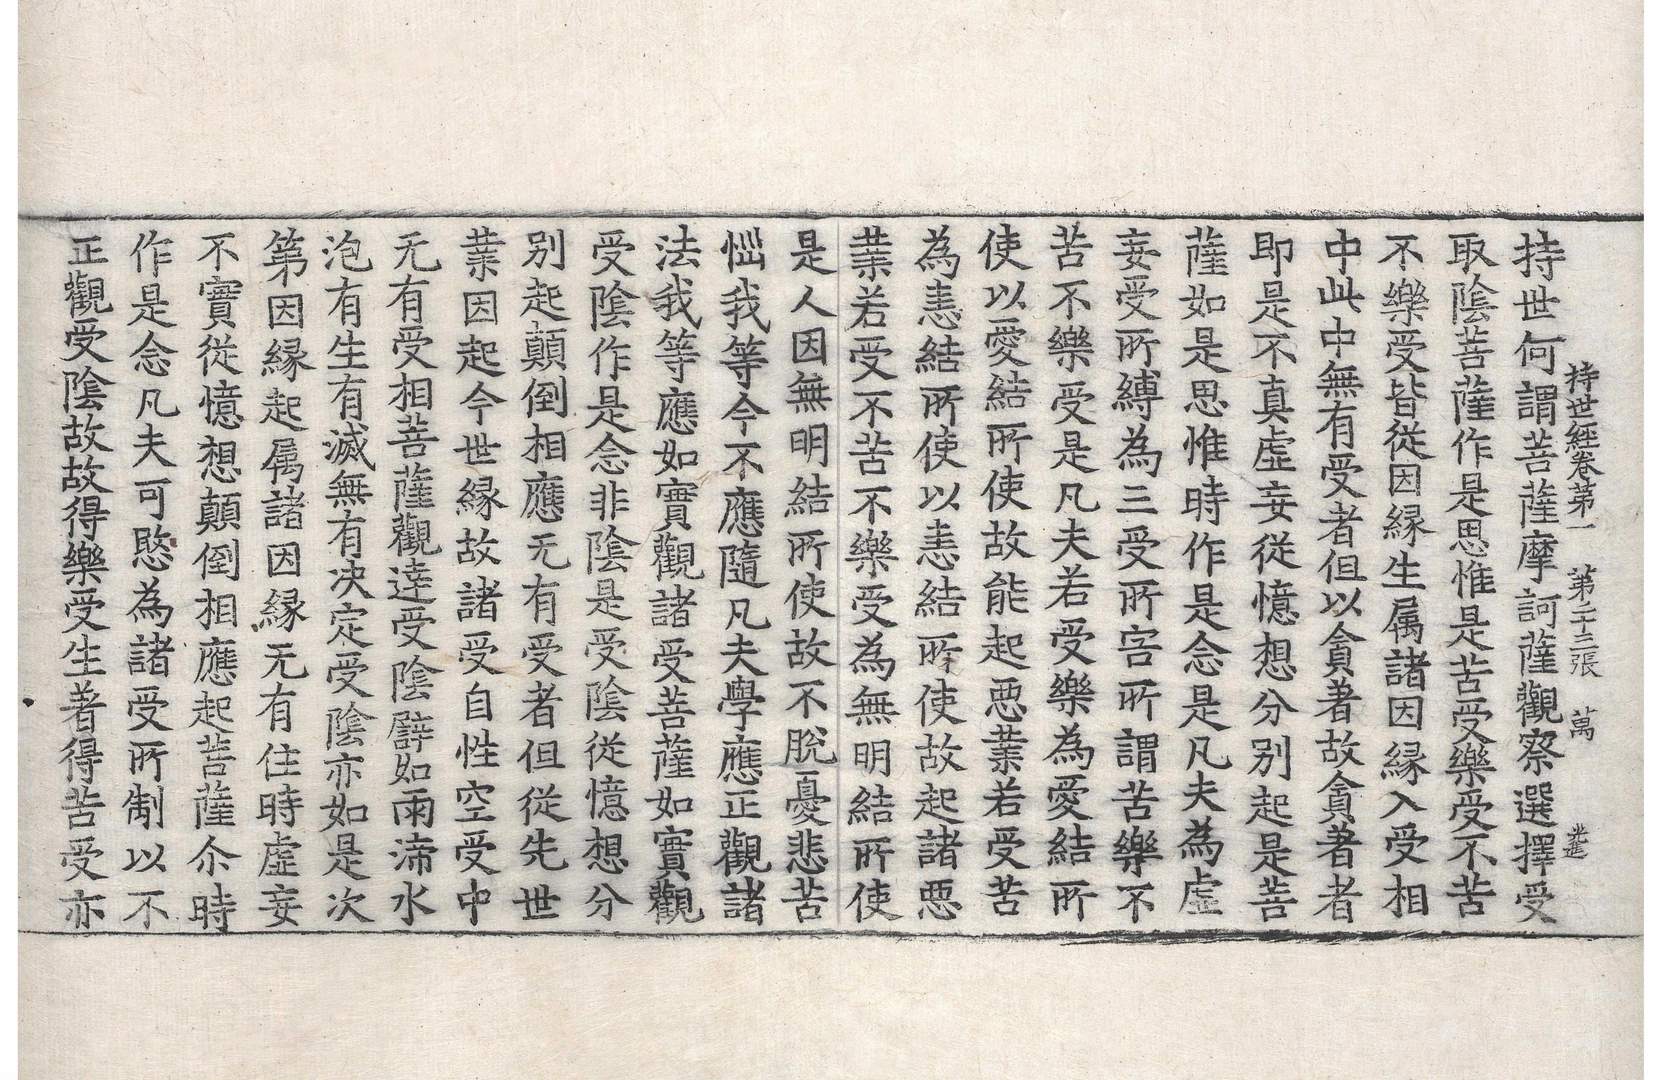 持世經卷第一 第二十三張 萬
持世何謂菩薩摩訶薩觀察選擇受
取陰菩薩作是思惟是苦受樂受不苦
不樂受皆從因緣生属諸因緣入受相
中此中無有受者但以貪著故貪著者
即是不真虛妄從憶想分別起是菩
薩如是思惟時作是念是凡夫為虛
妄受所縛為三受所害所謂苦樂不
苦不樂受是凡夫若受樂為愛結所
使以愛結所使故能起惡業若受苦
為恚結所使以恚結所使故起諸惡
業若受不苦不樂受為無明結所使
是人因無明結所使故不脫憂悲苦
惱我等今不應隨凡夫學應正觀諸
法我等應如實觀諸受菩薩如實觀
受陰作是念非陰是受陰從憶想分
別起顛倒相應无有受者但從先世
業因起今世緣故諸受自性空受中
无有受相菩薩觀達受陰譬如雨渧水
泡有生有滅無有决定受陰亦如是次
第因緣起属諸因緣无有住時虛妄
不實從憶想顛倒相應起菩薩尒時
作是念凡夫可愍為諸受所制以不
正觀受陰故故得樂受生著得苦受亦